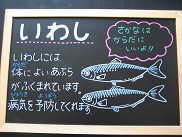 いわし
さかなは
からだに
いいよ!!
いわしには
体によいあぶら
がふくまれています。
病気を予防してくれます